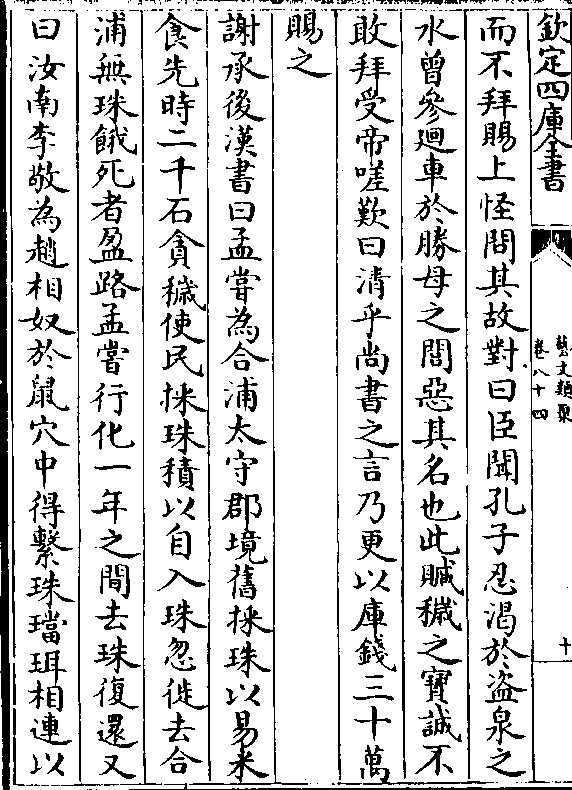 欽定四庫全書
藝文類聚
卷八十四
十
而不拜賜上怪問其故對曰臣聞孔子忍渴於盜泉之
水曾參廻車於勝母之閭惡其名也此贓穢之寶誠不
敢拜受帝嗟歎曰清乎尚書之言乃更以庫錢三十萬
賜之
謝承後漢書曰孟嘗為合浦太守郡境舊採珠以易米
食先時二千石貪穢使民採珠積以自入珠忽徙去合
浦無珠餓死者盈路孟嘗行化一年之間去珠復還又
曰汝南李敬為趙相奴於鼠穴中得繫珠璫珥相連以